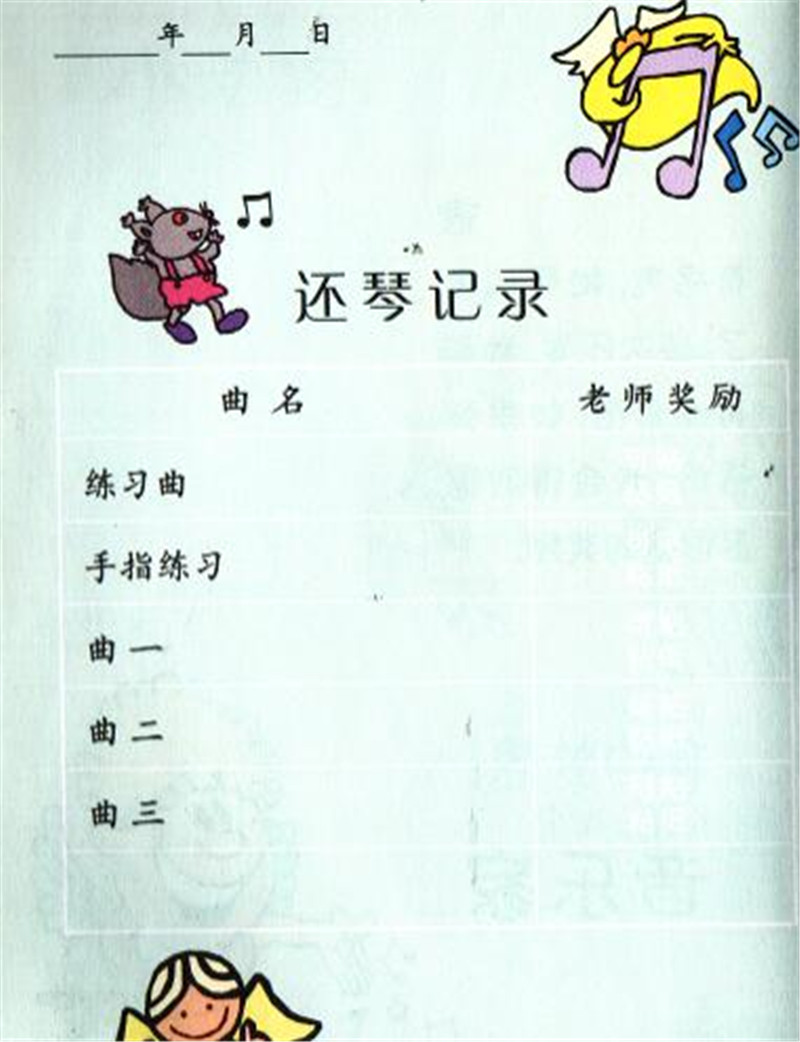 年 月 日
还琴记录
曲名 老师奖励
练习曲
手指练习
曲一
曲二
曲三
音乐家